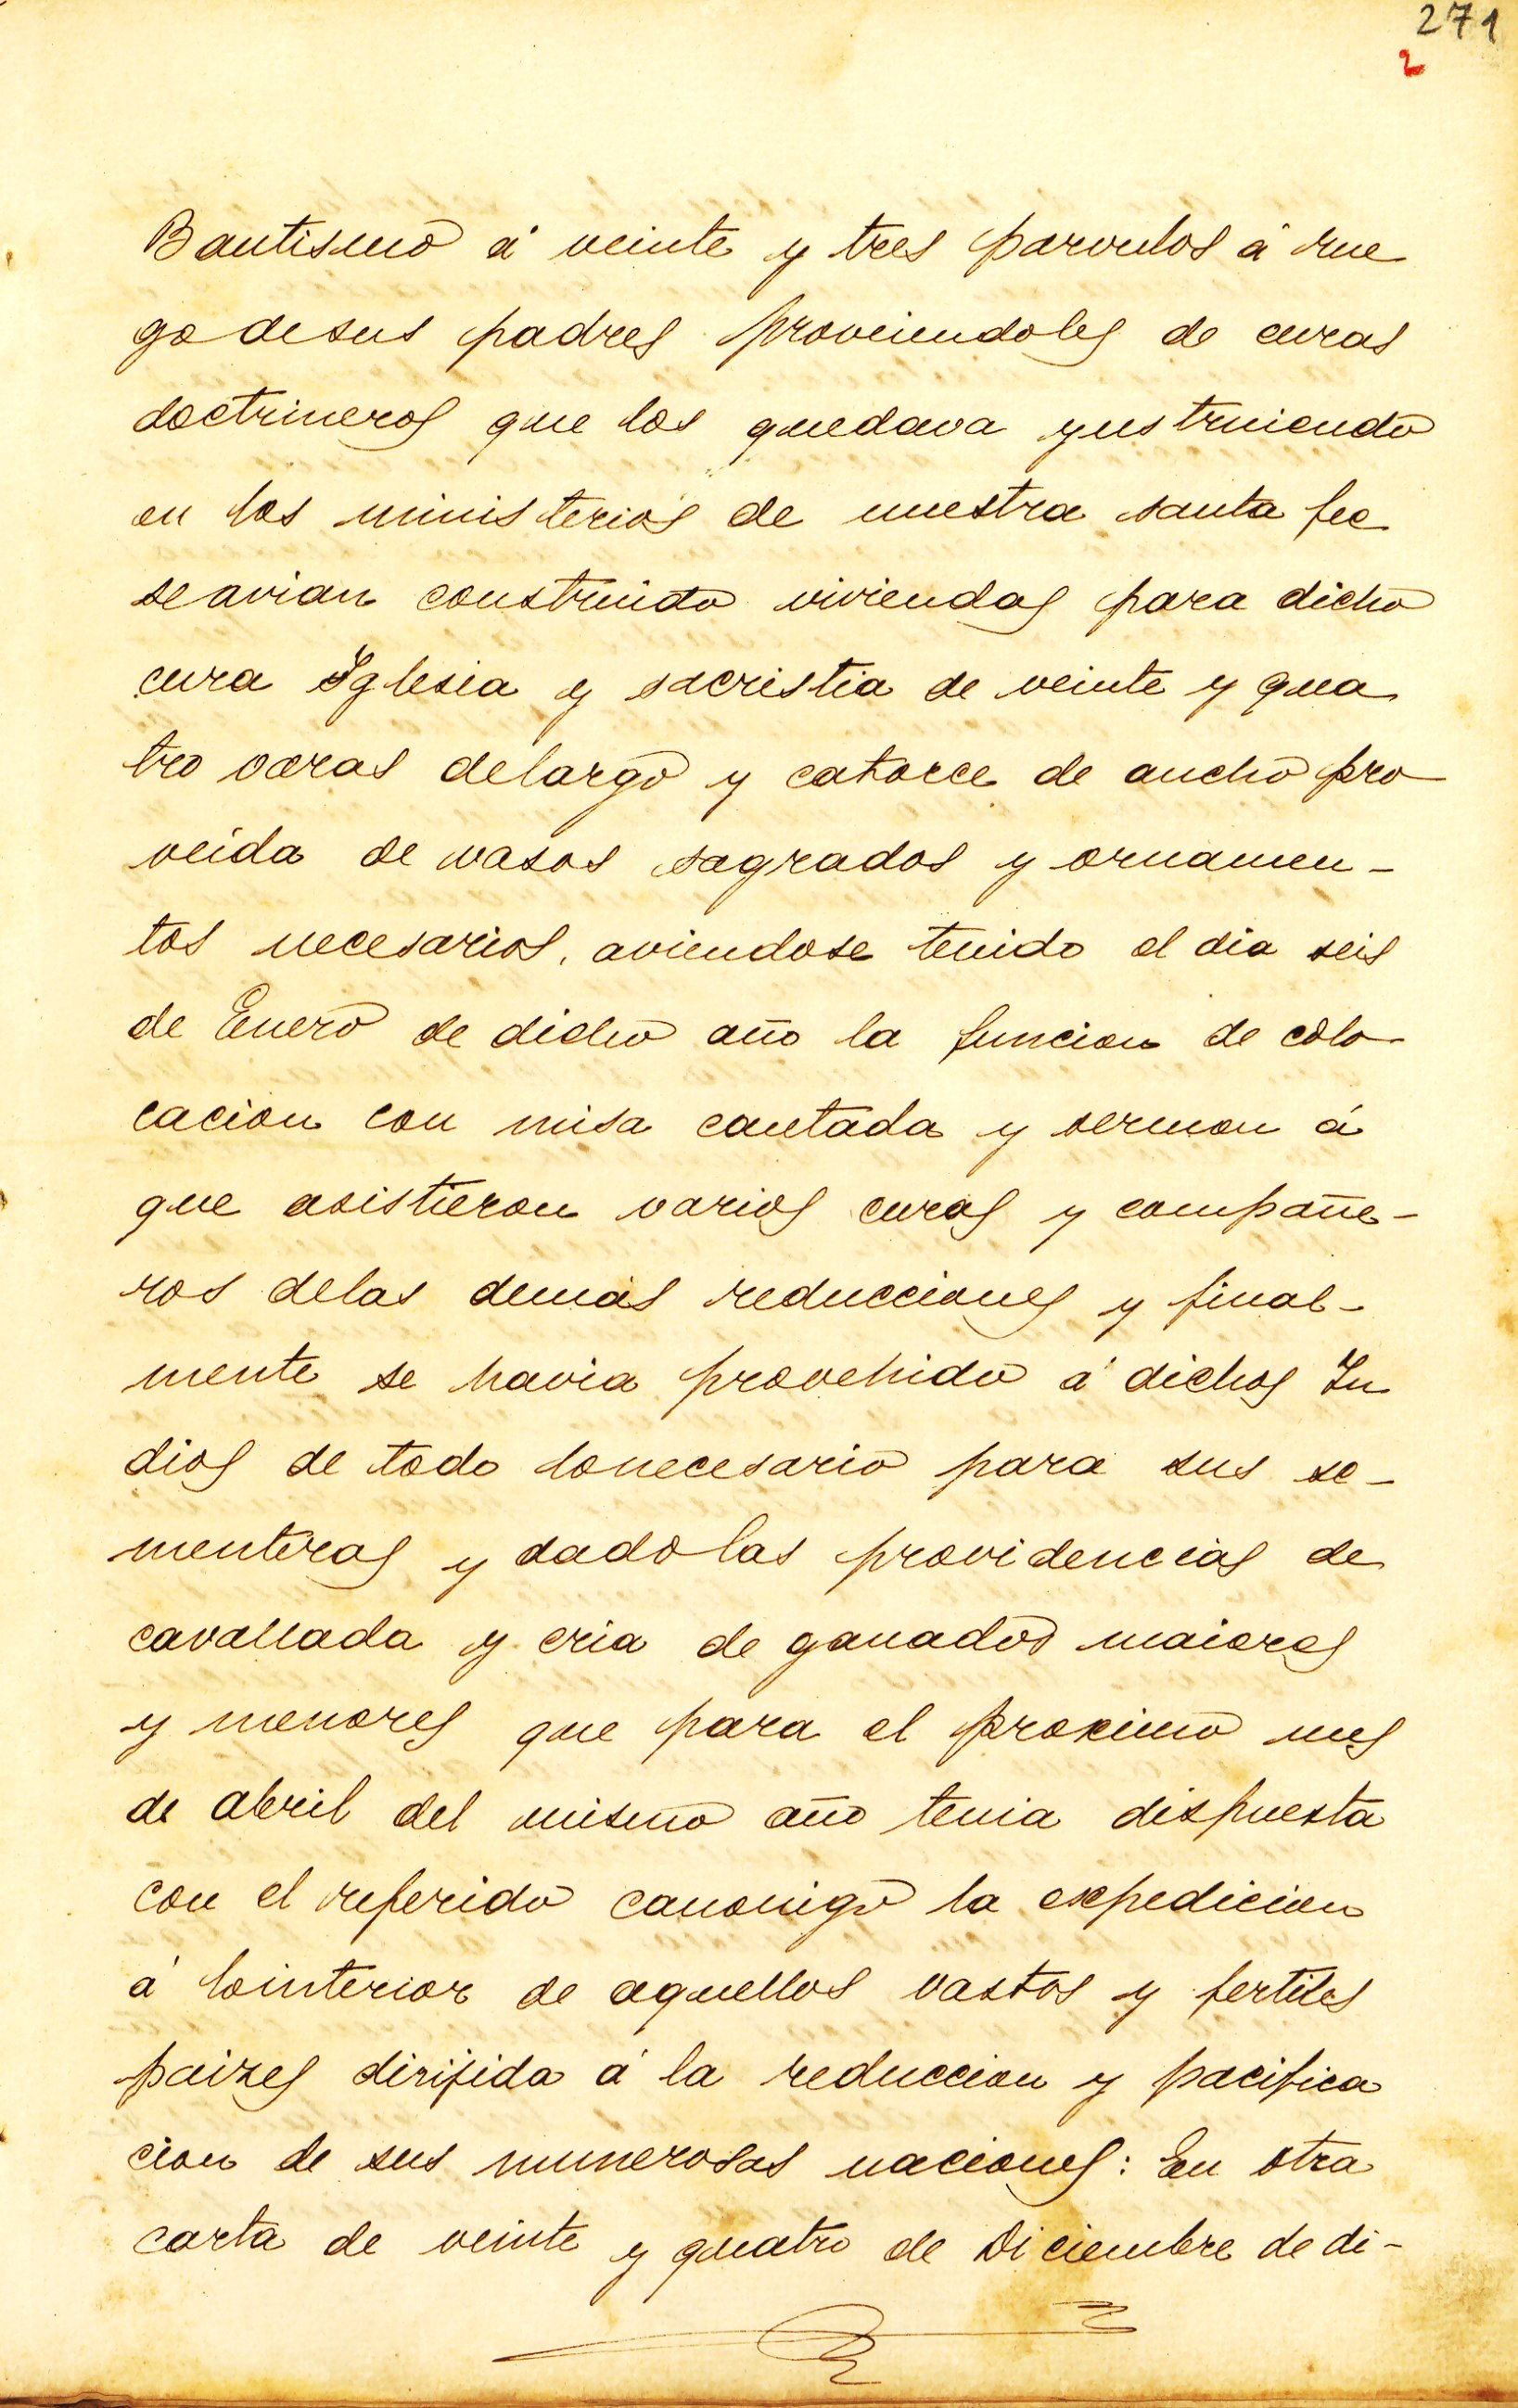 271
2
Bautismo á veinte y tres parvulos á rue
go desus padres proveiendoles de curas
doctrineros que los quedava ynstruiendo
en los ministerios de nuestra santa fee
se avian construido viviendas para dicho
cura Yglesia y sacristia de veinte y qua
tro varas delargo y catorce de ancho pro
veida de vasos sagrados y ornamen-
tos necesarios, aviendose tenido el dia seis
de Enero de dicho año la funcion de colo
cacion con misa cantada y sermon á
que asistieron varios curas y compañe-
ros delas demás reducciones y final-
mente se havia provehido á dichos In
dios de todo lonecesario para sus se-
menteras y dado las providencias de
cavallada y cria de ganados maiores
y menores que para el proximo mes
de abril del mismo año tenia dispuesta
con el referido canonigo la expedicion
á lointerior de aquellos vastos y fertiles
paizes dirijida á la reduccion y pacifica
cion de sus numerosas naciones: En otra
carta de veinte y quatro de Diciembre de di-